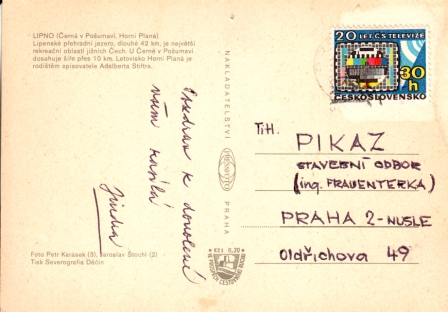 LIPNO (Černá v Pošumaví, Horní Planá)
Lipenské přehradní jezero, dlouhé 42 km, je největší
rekreační oblastí jižních Čech. U Černé v Pošumaví
dosahuje šíře přes 10 km. Letovisko Horní Planá je
rodištěm spisovatele Adalberta Stiftra.
Pozdrav k dovolené
vám posílá
Jindra
Foto Petr Karásek (3), Jaroslav Štochl (2)
Tisk Severografia Děčín
NAKLADATELSTVÍ
PRESSFOTO
PRAHA
Kčs 0,70
20 LET ČS. TELEVIZE
30 h
ČESKOSLOVENSKO
TiH.
PIKAZ
STAVEBNÍ ODBOR
(ing. FRAUENTERKA)
PRAHA 2-NUSLE
Oldřichova 49